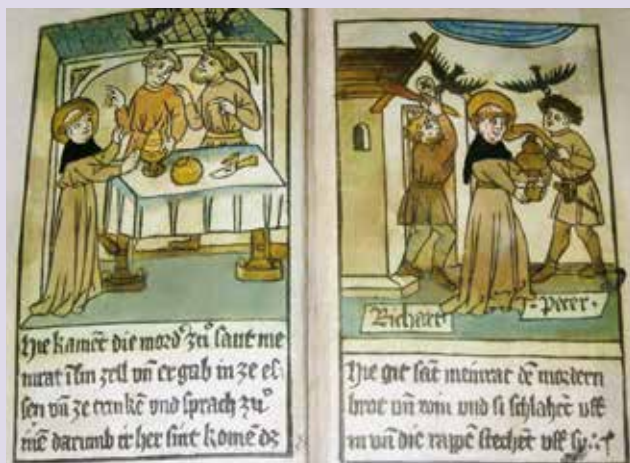 Hie kamēt die mord' zů sant me
inrat ī sin zell vn̄ er gab in ze es-
sen vn̄ ze trinkē vnd sprach zů
inē darumb ir her sint komē dz
Richart
Peter
Hie git sāt meinrat dē mordern
brot vn̄ win vnd si schlahēt vff
in vn̄ die rappē stechēt vff sy